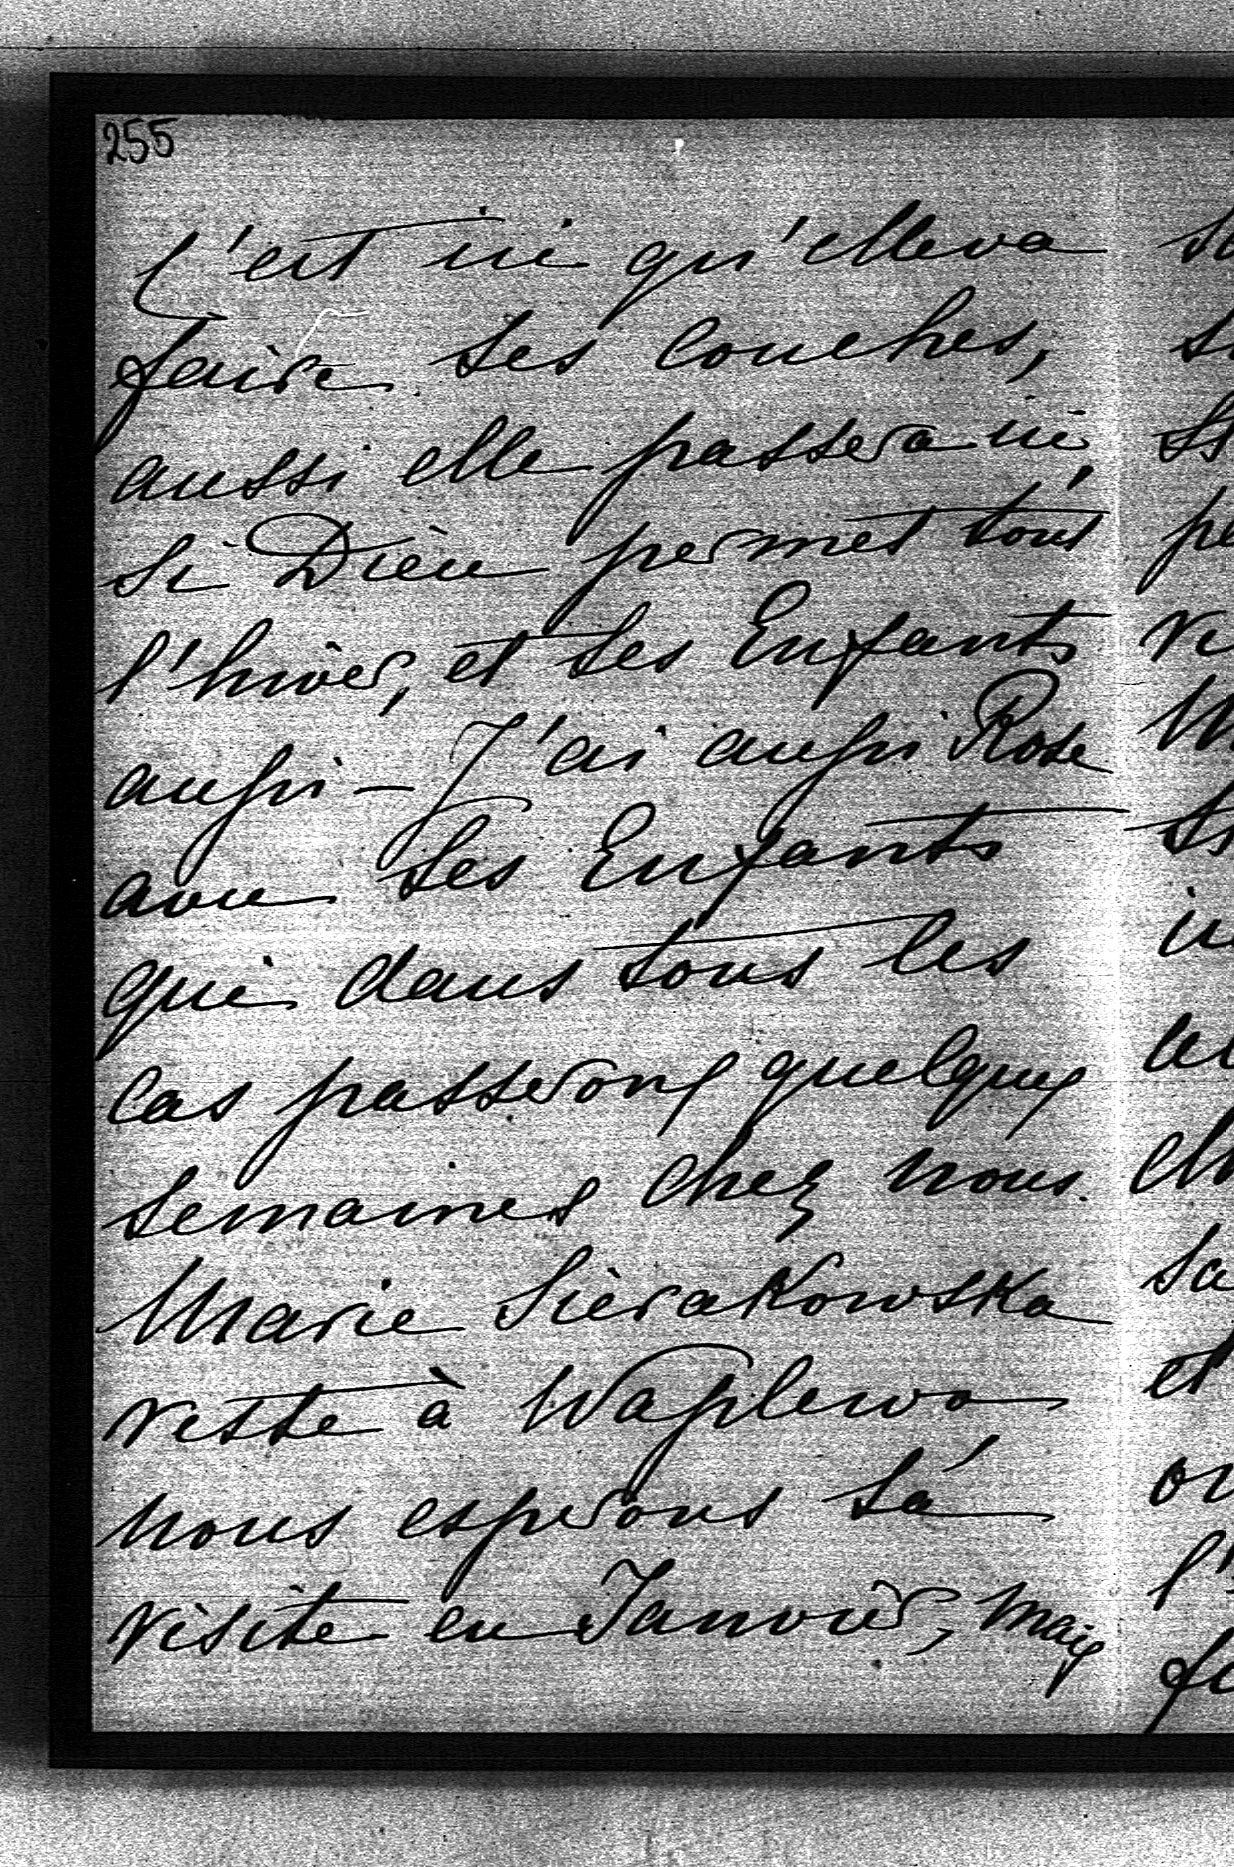 255
C'est ici qu'elle va
faire ses couches,
aussi elle passera ici,
si Dieu permet tout
l'hiver, et ses Enfants
aussi — J'ai aussi Rose
avec ses Enfants
qui dans tous les
cas passerons quelques
semaines chez nous.
Marie Sierakowska
reste à Waplewo
nous esperons sá
visite en Janvier, mais